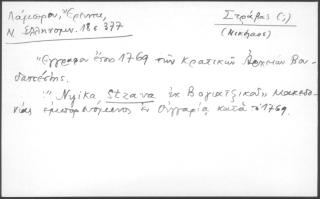 Λάμπρου, "Ἔρευναι,
Ν. Ἑλληνομν. 18 σ 377
Στράβας (;)
(Νικόλαος)
"Ἔγγραφα ἔτους 1769 τῶν Κρατικῶν Ἀρχείων Βου-
δαπέστης.
"Nyika Strava ἐκ Βογιατζικοῦ" Μακεδο-
νίας ἐμπορευόμενος ἐν Οὐγγαρίᾳ κατὰ τὸ 1769.